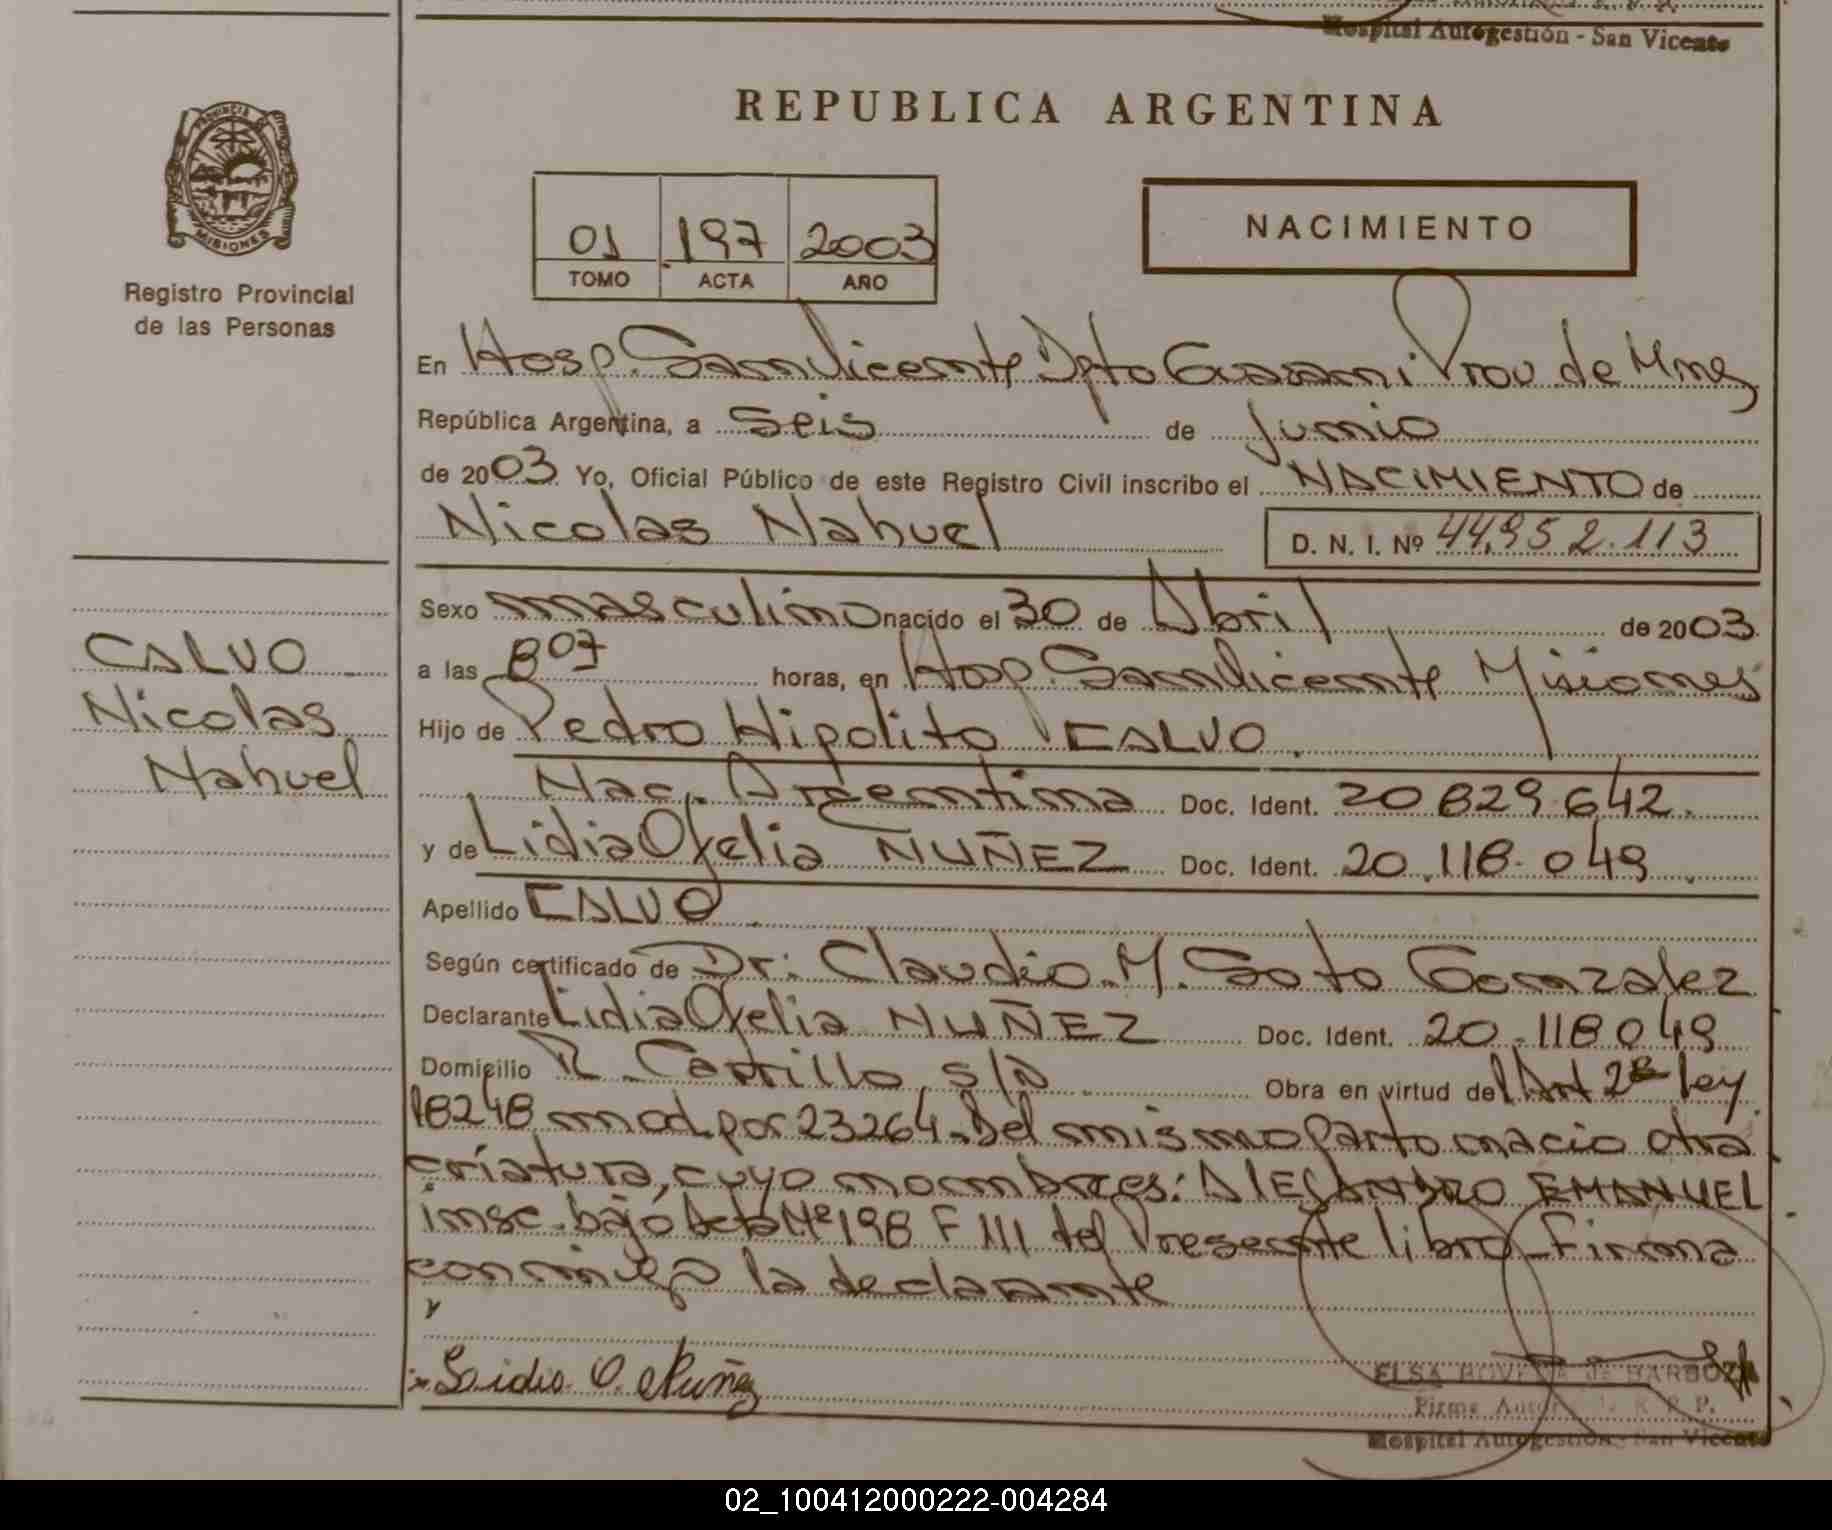 Hospital Autogestión - San Vicente
REPUBLICA ARGENTINA
PROVINCIA DE
MISIONES
Registro Provincial
de las Personas
01 197 2003
TOMO ACTA AÑO
NACIMIENTO
En Hosp. San Vicente Dpto Guarani Prov de Mnes
República Argentina, a seis de junio
de 2003 Yo, Oficial Público de este Registro Civil inscribo el NACIMIENTO de
Nicolas Nahuel D. N. I. Nº 44.952.113
Sexo masculino nacido el 30 de Abril de 2003
a las 8 07 horas, en Hosp. San Vicente Misiones
Hijo de Pedro Hipolito CALVO.
Nac. Argentina Doc. Ident. 20 829.642.
y de Lidia Ofelia NUÑEZ Doc. Ident. 20.118.049.
Apellido CALVO.
Según certificado de Dr: Claudio. M. Soto Gonzalez
Declarante Lidia Ofelia NUÑEZ Doc. Ident. 20.118049
Domicilio R. Carrillo s/n Obra en virtud del Art 2º ley
18248 mod. por 23264. Del mismo parto nacio otra
criatura, cuyo nombres: ALEJANDRO EMANUEL
insc. bajo Acta Nº 198 F 111 del Presente libro Firma
conmigo la declarante
CALVO
Nicolas
Nahuel
Lidia O. Nuñez
ELSA de BARBOZA
Firma R. P. P.
Hospital Autogestión - San Vicente
02_100412000222-004284